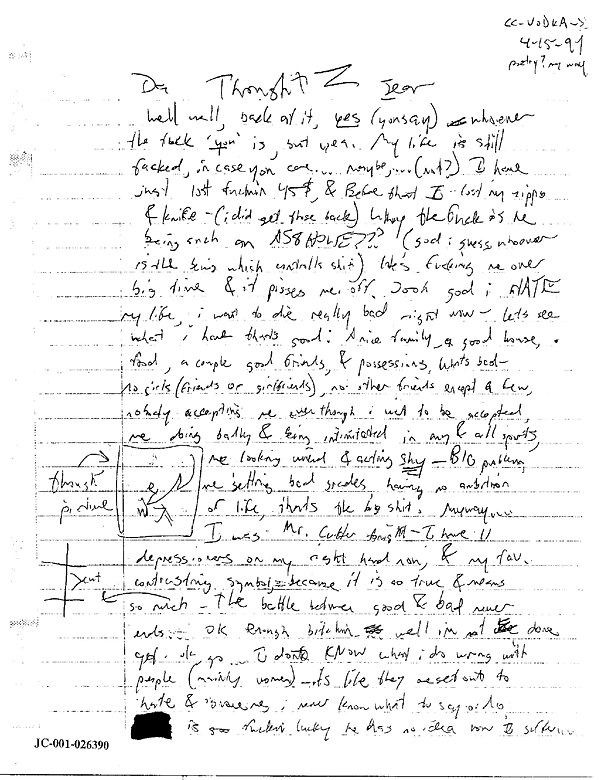 4-15-97
poetry? my way
Thought
well well, back at it, yes (you say) whoever
the fuck 'you' is, but yea. My life is still
fucked, in case you care... maybe,... (not?) I have
just lost fuckin 45$, & Before that I lost my zippo
& knife - (i did get those back) Why the fuck is he
being such an ASSHOLE??? (god i guess, whoever
is the being which controlls shit) he's fucking me over
big time & it pisses me off. god i HATE
my life, i want to die really bad right now - lets see
what i have thats good: A nice family, a good house,
food, a couple good friends, & possessions, whats bad -
no girls (friends or girlfriends), no other friends except a few,
nobody accepting me even though i want to be accepted,
me doing badly & being intimidated in any & all sports,
me looking weird & acting shy - BIG problem,
me getting bad grades, having no ambition
of life, thats the big shit. Anyway...
I was Mr. Cutter - I have 11
depressioners on my right hand now, & my fav.
contrasting symbol because it is so true & means
so much - The battle between good & bad never
ends... OK enough bitchin well im not done
yet. ok go... I dont KNOW what i do wrong with
people (mainly women) - its like they set out to
hate & me, i never know what to say or do
is fuckin lucky he has no idea how I suffer...
thought
picture
JC-001-026390